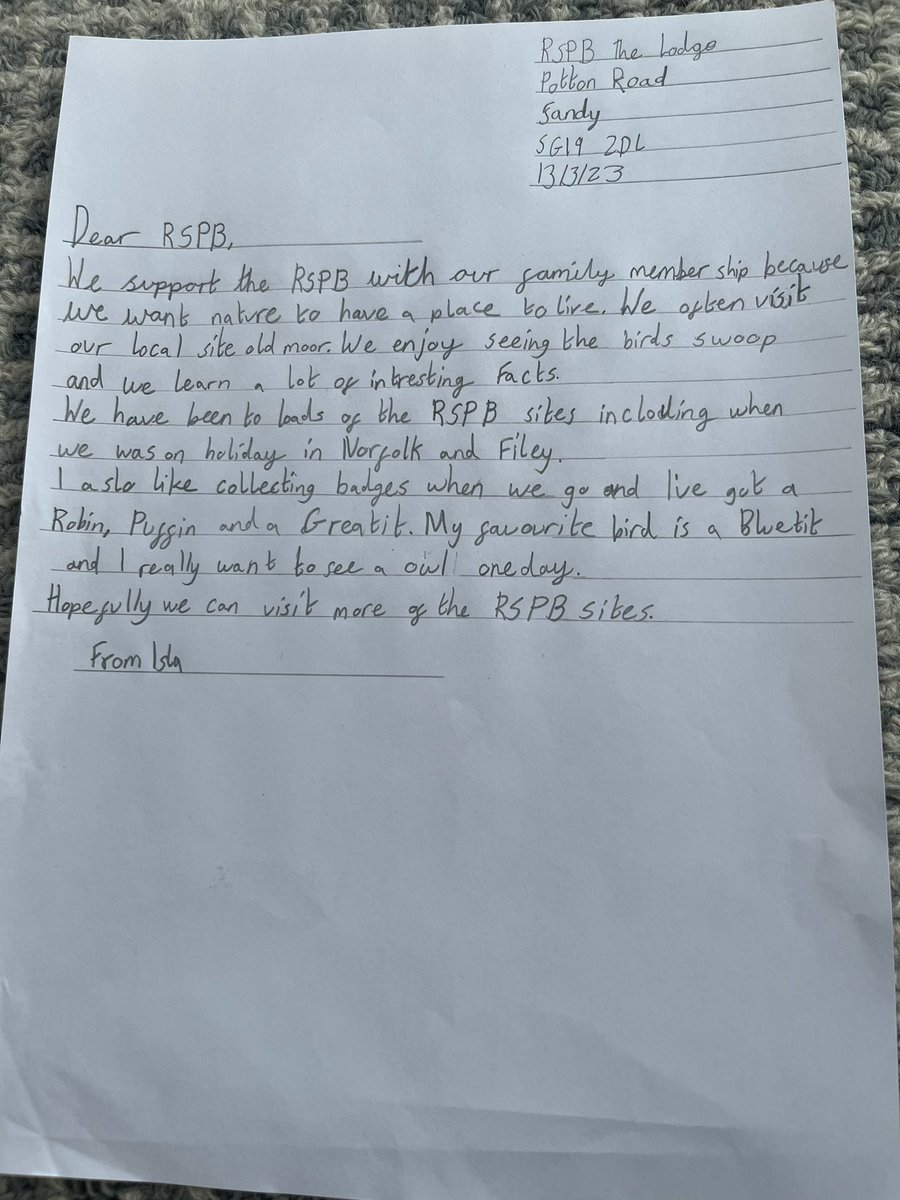 RSPB The Lodge
Potton Road
Sandy
SG19 2DL
13/3/23
Dear RSPB,
We support the RSPB with our family member ship because
we want nature to have a place to live. We often visit
our local site old moor. We enjoy seeing the birds swoop
and we learn a lot of intresting facts.
We have been to loads of the RSPB sites inclooling when
we was on holiday in Norfolk and Filey.
I aslo like collecting badges when we go and I've got a
Robin, Puffin and a Greatit. My favourite bird is a Bluetit
and I really want to see a owl oneday.
Hopefully we can visit more of the RSPB sites.
From Isla